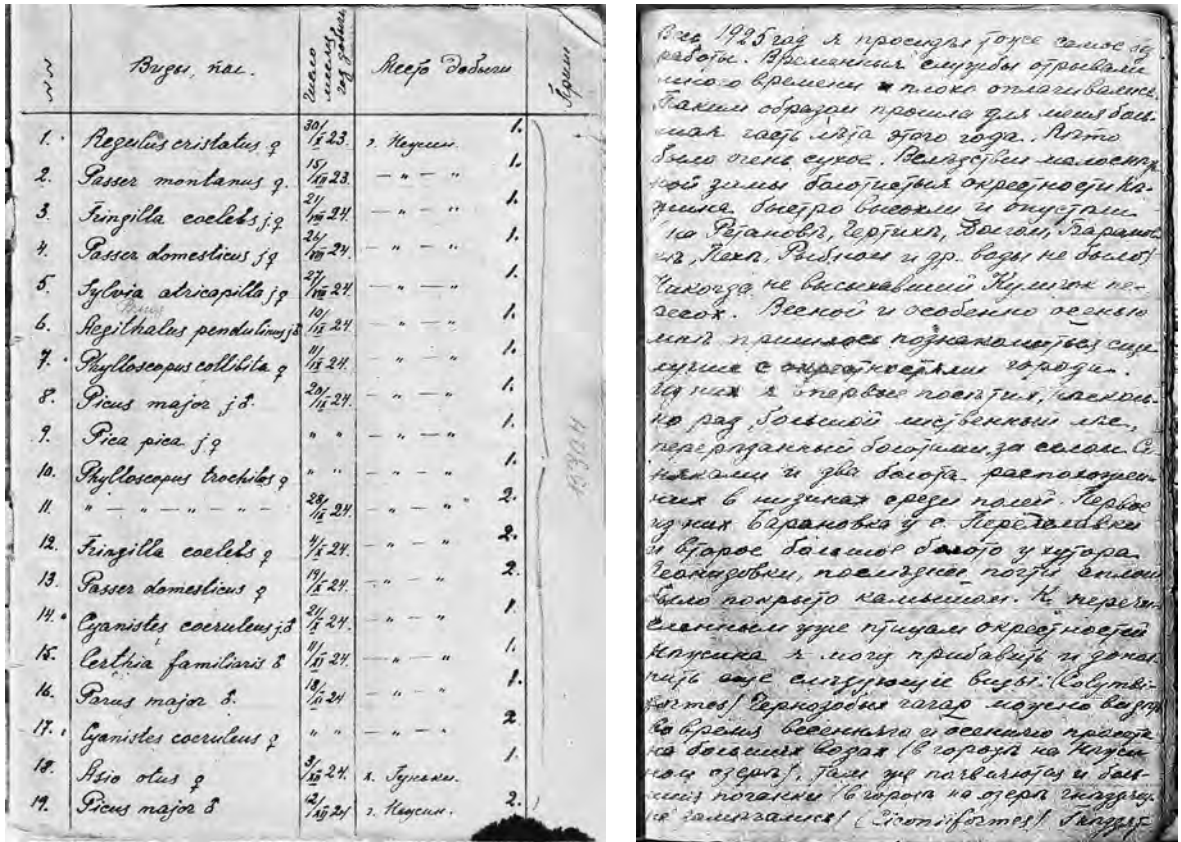 №№ Виды, пол. Число месяц год добычи Место добычи Прим
1. Regulus cristatus ♀ 30/X 23. г. Нежин. 1.
2. Passer montanus ♀. 15/XII 23. — " — " 1.
3. Fringilla coelebs j. ♀ 21/VIII 24. — " — " 1.
4. Passer domesticus j ♀ 26/VIII 24. — " — " 1.
5. Sylvia atricapilla j ♀ 27/VIII 24. — " — " 1.
6. Aegithalus pendulinus j ♂ 10/IX 24. — " — " 1.
7. Phylloscopus collibita ♀ 11/IX 24. — " — " 1.
8. Picus major j ♂. 20/IX 24. — " — " 1.
9. Pica pica j ♀ " " — " — " 1.
10. Phylloscopus trochilos ♀ " " — " — " 1.
11. " — " — " — " — 28/IX 24. — " — " 2.
12. Fringilla coelebs ♀ 4/X 24. — " — " 2.
13. Passer domesticus ♀ 19/X 24. — " — " 2.
14. Cyanistes coeruleus j. ♂ 21/X 24. — " — " 1.
15. Certhia familiaris ♂ 11/XI 24. — " — " 1.
16. Parus major ♂. 18/XI 24 — " — " 1.
17. Cyanistes coeruleus ♀ " " — " — " 2
18. Asio otus ♀ 3/XII 24. х. Гуньки. 1.
19. Picus major ♂ 12/XII 24 г. Нежин. 2.
Весь 1925 год я просидѣл тоже самое
работы. Временныя службы отрывали
много времени и плохо оплачивались.
Таким образом прошла для меня боль-
шая часть лѣта этого года. Лѣто
было очень сухое. Вслѣдствии малоснѣж
ной зимы болотистыя окрестности Нѣ-
жина быстро высохли и опустѣли
на Чертихѣ,
Рыбном и др. воды не было!
Никогда не высыхавший пе-
ресох. Весной и особенно осенью
мнѣ пришлось познакомиться еще
лучше с окрестностями города.
Из них я впервые посѣтил, нѣсколь-
ко раз, большой лиственный лѣс,
перерѣзанный болотами, за селом Си-
няками и два болота расположен-
ных в низинах среди полей. Первое
из них Барановка у с. Переяславки
и второе большое болото у хутора
последнее почти сплошь
было покрыто камышом. К перечи-
сленным уже птицам окрестностей
Нѣжина я могу прибавить и допол-
нить еще слѣдующие виды: (Colymbi-
formes) Чернозобых гагар можно видѣть
во время весенняго и осенняго пролета
на больших водах (в городѣ на
ном озерѣ), там же появляются и боль-
шия поганки (в городѣ на озерѣ
не замѣчались) (Ciconiiformes)